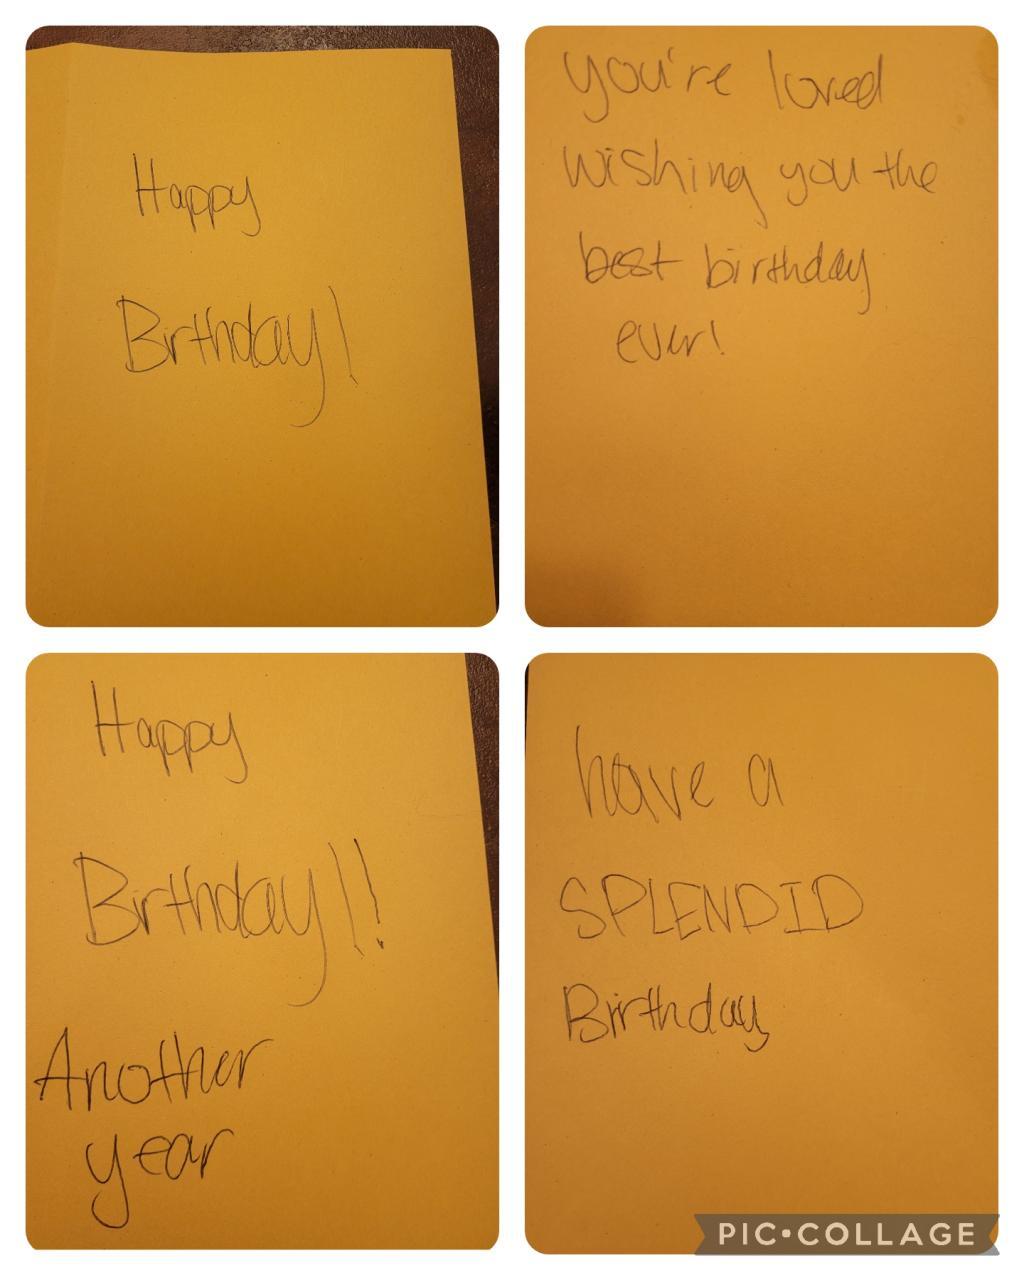 Happy
Birthday!
you're loved
Wishing you the
best birthday
ever!
Happy
Birthday!!
Another
year
have a
SPLENDID
Birthday
PIC•COLLAGE